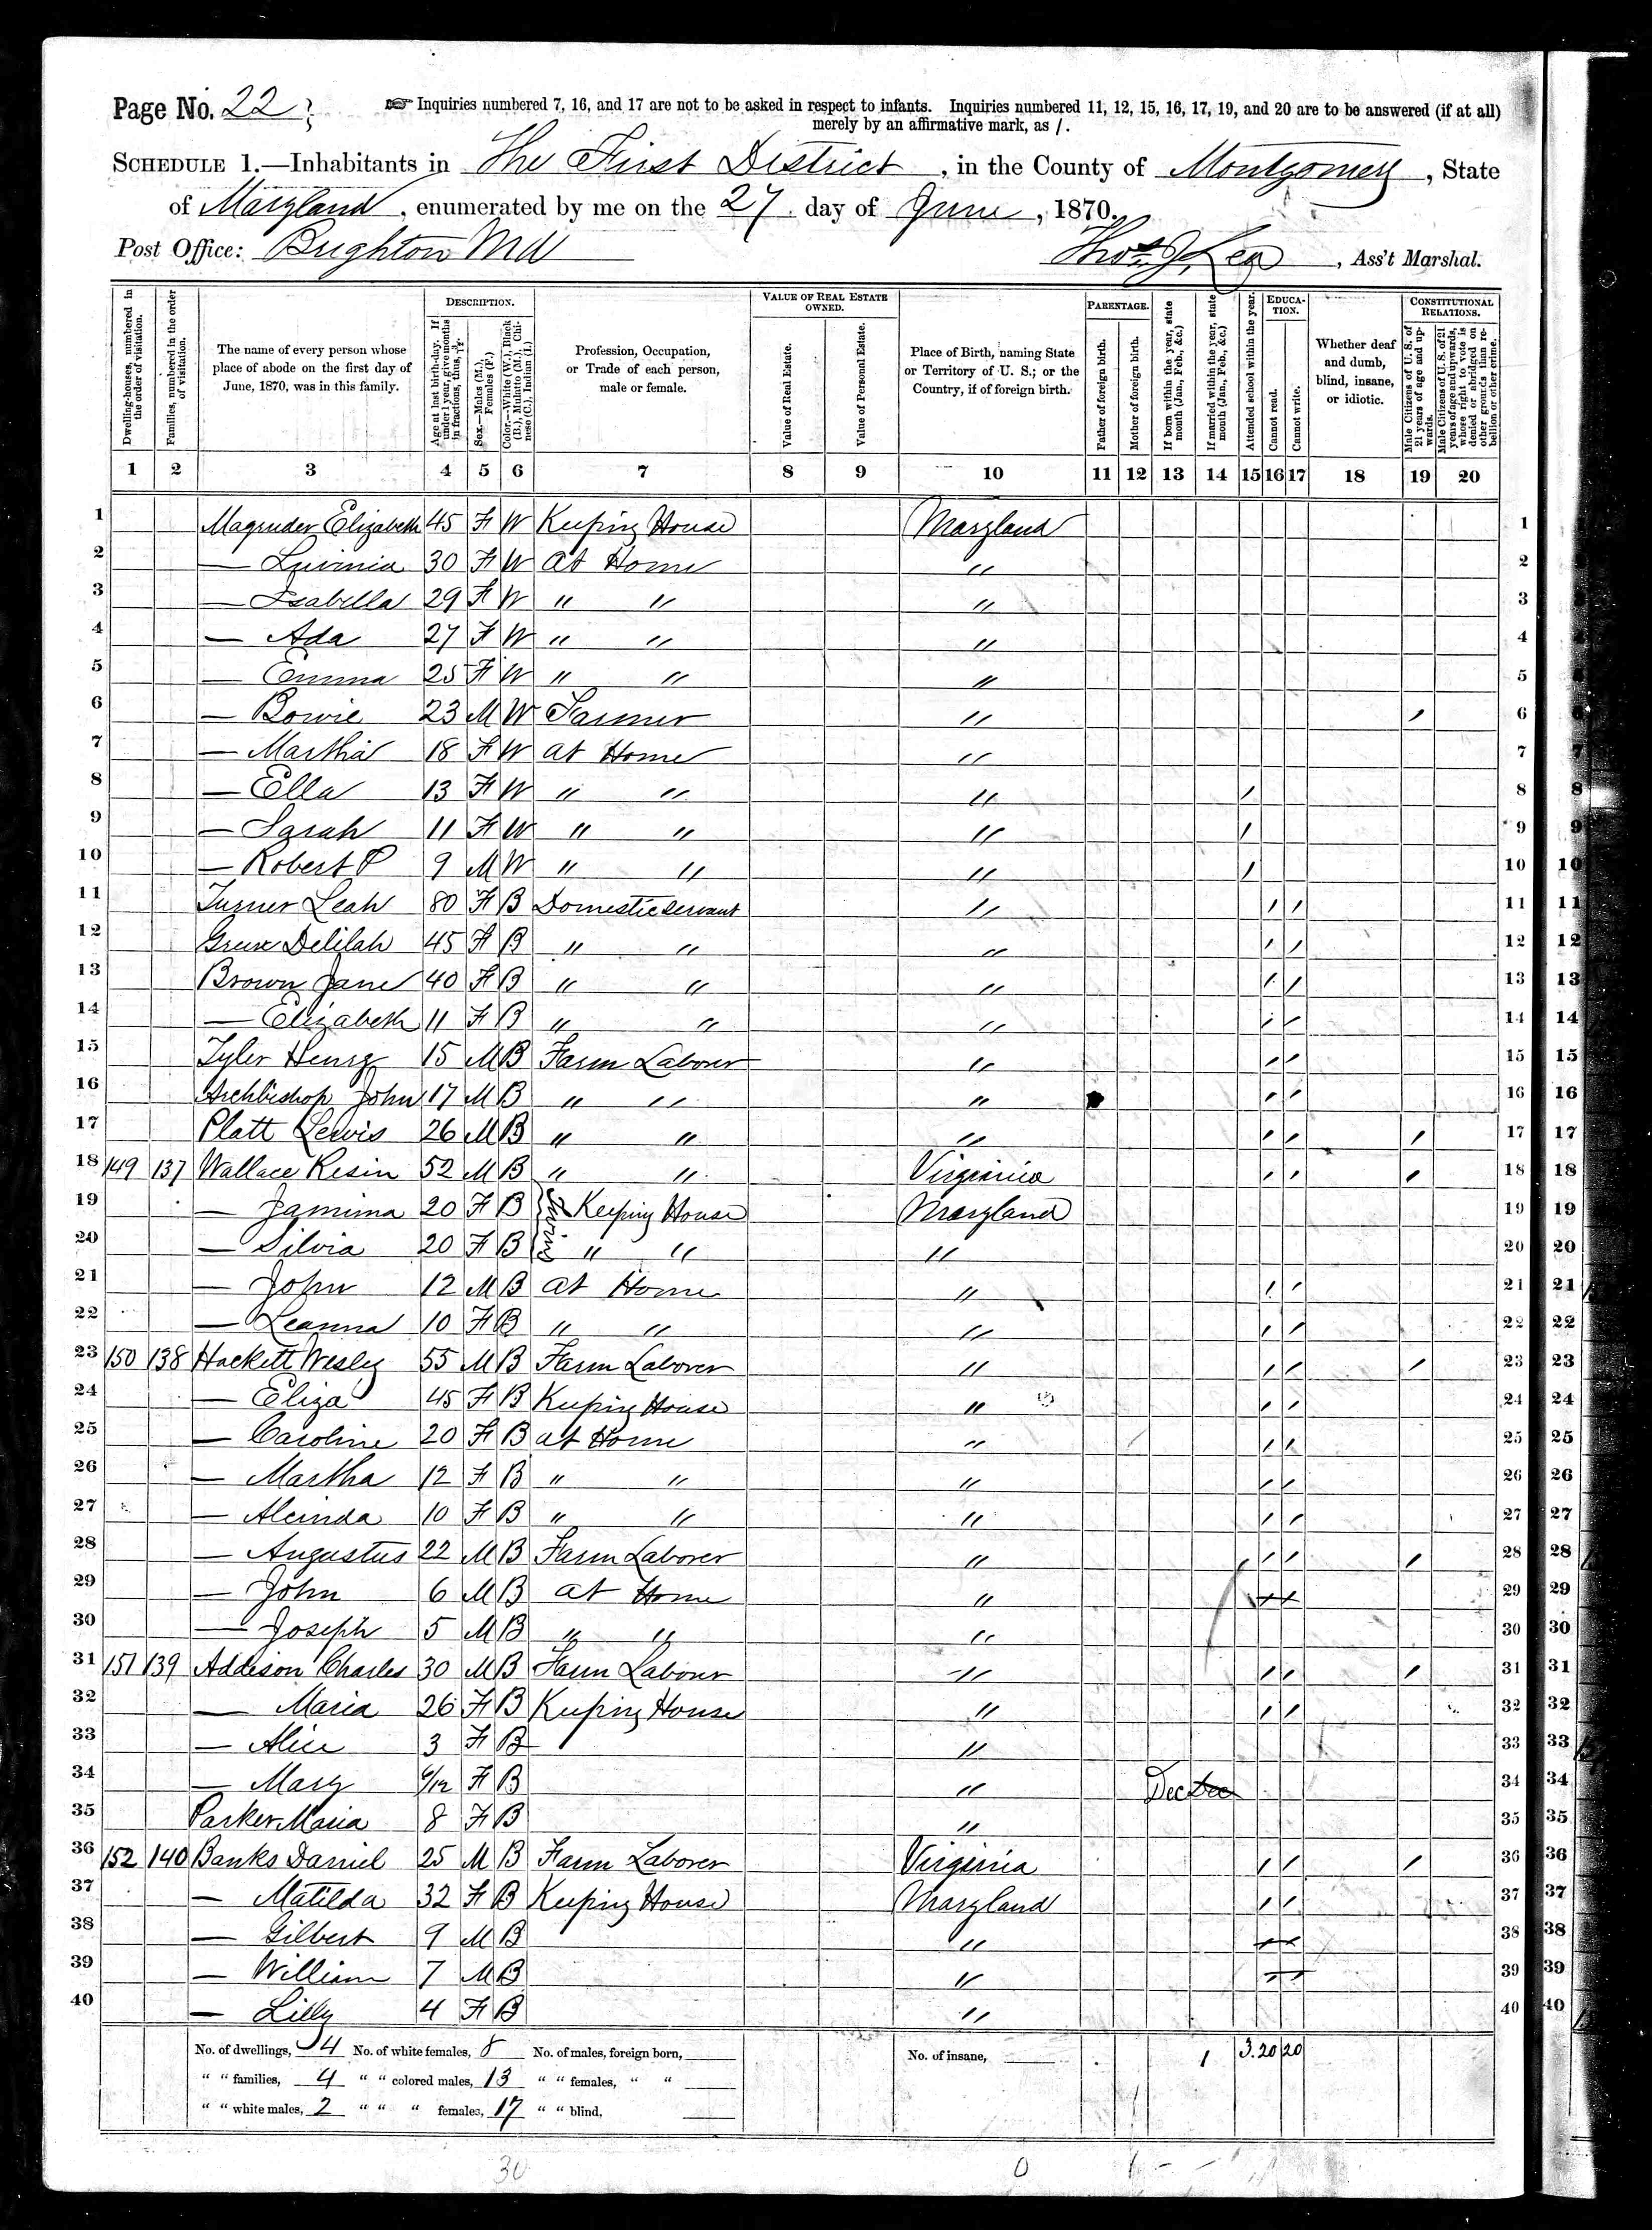 Page No. 22
☞ Inquiries numbered 7, 16, and 17 are not to be asked in respect to infants. Inquiries numbered 11, 12, 15, 16, 17, 19, and 20 are to be answered (if at all)
merely by an affirmative mark, as /.
SCHEDULE 1.—Inhabitants in The First District, in the County of Montgomery, State
of Maryland, enumerated by me on the 27 day of June, 1870.
Post Office: Brighton Md Thos. J. Lea, Ass't Marshal.
DESCRIPTION. VALUE OF REAL ESTATE OWNED. PARENTAGE. EDUCATION. CONSTITUTIONAL RELATIONS.
Dwelling-houses, numbered in the order of visitation.
Families, numbered in the order of visitation.
The name of every person whose place of abode on the first day of June, 1870, was in this family.
Age at last birth-day. If under 1 year, give months in fractions, thus, 3/12.
Sex.—Males (M.), Females (F.)
Color.—White (W.), Black (B.), Mulatto (M.), Chinese (C.), Indian (I.)
Profession, Occupation, or Trade of each person, male or female.
Value of Real Estate.
Value of Personal Estate.
Place of Birth, naming State or Territory of U. S.; or the Country, if of foreign birth.
Father of foreign birth.
Mother of foreign birth.
If born within the year, state month (Jan., Feb., &c.)
If married within the year, state month (Jan., Feb., &c.)
Attended school within the year.
Cannot read.
Cannot write.
Whether deaf and dumb, blind, insane, or idiotic.
Male Citizens of U. S. of 21 years of age and upwards.
Male Citizens of U. S. of 21 years of age and upwards, whose right to vote is denied or abridged on other grounds than rebellion or other crime.
1 2 3 4 5 6 7 8 9 10 11 12 13 14 15 16 17 18 19 20
1 Magruder Elizabeth 45 F W Keeping House Maryland 1
2 — Luvinia 30 F W At Home " 2
3 — Isabella 29 F W " " " 3
4 — Ada 27 F W " " " 4
5 — Emma 25 F W " " " 5
6 — Bowie 23 M W Farmer " / 6
7 — Martha 18 F W At Home " 7
8 — Ella 13 F W " " " / 8
9 — Sarah 11 F W " " " / 9
10 — Robert P 9 M W " " " / 10
11 Turner Leah 80 F B Domestic Servant " / / 11
12 Green Delilah 45 F B " " " / / 12
13 Brown Jane 40 F B " " " / / 13
14 — Elizabeth 11 F B " " " / / 14
15 Tyler Henry 15 M B Farm Laborer " / / 15
16 Archbishop John 17 M B " " " / / 16
17 Platt Lewis 26 M B " " " / / / 17
18 149 137 Wallace Resin 52 M B " " Virginia / / / 18
19 — Jamima 20 F B Twins Keeping House Maryland 19
20 — Silvia 20 F B " " " 20
21 — John 12 M B At Home " / / 21
22 — Leanna 10 F B " " " / / 22
23 150 138 Hackett Wesley 55 M B Farm Laborer " / / / 23
24 — Eliza 45 F B Keeping House " / / 24
25 — Caroline 20 F B At Home " / / 25
26 — Martha 12 F B " " " / / 26
27 — Alcinda 10 F B " " " / / 27
28 — Augustus 22 M B Farm Laborer " / / / 28
29 — John 6 M B At Home " 29
30 — Joseph 5 M B " " " 30
31 151 139 Addison Charles 30 M B Farm Laborer " / / / 31
32 — Maria 26 F B Keeping House " / / 32
33 — Alice 3 F B " 33
34 — Mary 6/12 F B " Dec Dec 34
35 Parker Maria 8 F B " 35
36 152 140 Banks Daniel 25 M B Farm Laborer Virginia / / / 36
37 — Matilda 32 F B Keeping House Maryland / / 37
38 — Gilbert 9 M B " 38
39 — William 7 M B " 39
40 — Lilly 4 F B " 40
No. of dwellings, 4 No. of white females, 8 No. of males, foreign born, No. of insane, 1 3 20 20
" " families, 4 " " colored males, 13 " " females, " "
" " white males, 2 " " " females, 17 " " blind.
30 0 1